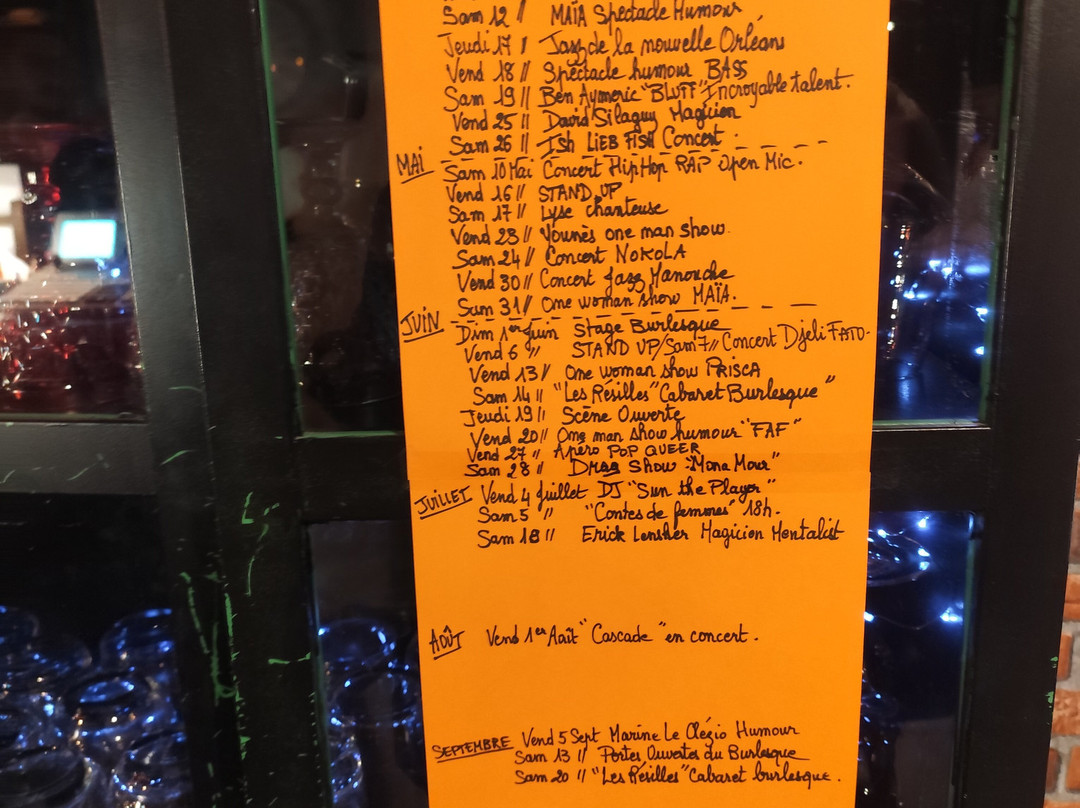 Sam 12 // MAÏA Spectacle Humour
Jeudi 17 // Jazz de la nouvelle Orléans
Vend 18 // Spectacle humour BASS
Sam 19 // Ben Aymeric "BLUFF" Incroyable talent.
Vend 25 // David Silaguy Magicien
Sam 26 // Ish LIEB FISH Concert.
MAI Sam 10 Mai Concert HipHop RAP Open Mic.
Vend 16 // STAND UP
Sam 17 // Lyse chanteuse
Vend 23 // Younès one man show.
Sam 24 // Concert NOKOLA
Vend 30 // Concert Jazz Manouche
Sam 31 // One woman show MAÏA.
JUIN Dim 1er Juin Stage Burlesque
Vend 6 // STAND UP/Sam 7 // Concert Djeli FATO.
Vend 13 // One woman show PRISCA
Sam 14 // "Les Résilles" Cabaret Burlesque"
Jeudi 19 // Scène Ouverte
Vend 20 // One man show humour "FAF"
Vend 27 // Apéro POP QUEER
Sam 28 // Drag Show "Mona Mour"
JUILLET Vend 4 Juillet DJ "Sun the Player"
Sam 5 // "Contes de femmes" 18h.
Sam 18 // Erick Magicien Mentalist
AOÛT Vend 1er Août "Cascade" en concert.
SEPTEMBRE Vend 5 Sept Marine Le Clézio Humour
Sam 13 // Portes Ouvertes du Burlesque
Sam 20 // "Les Résilles" Cabaret burlesque.